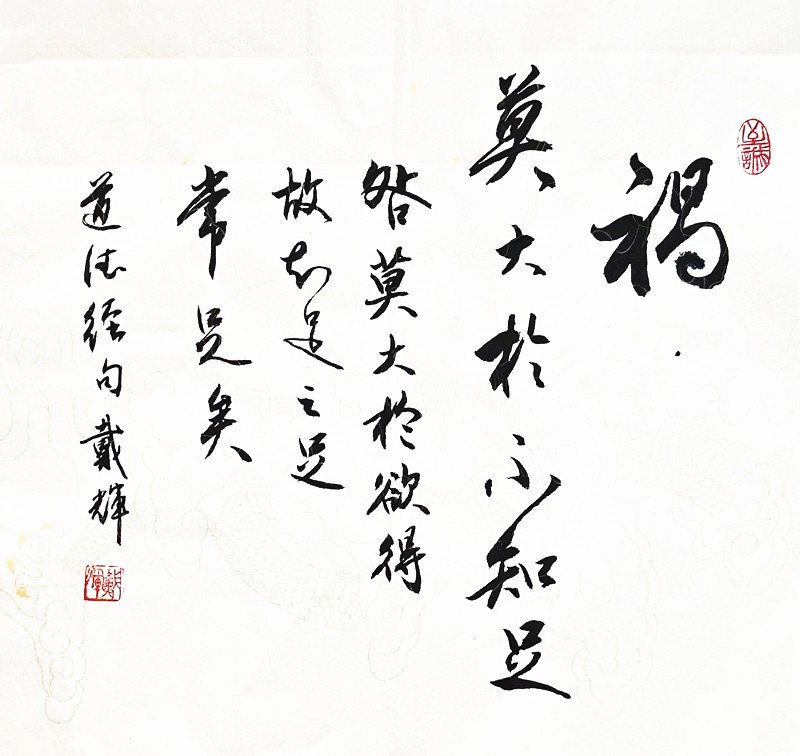 禍
莫大於不知足
咎莫大於欲得
故知足之足
常足矣
道德經句戴輝
戴輝